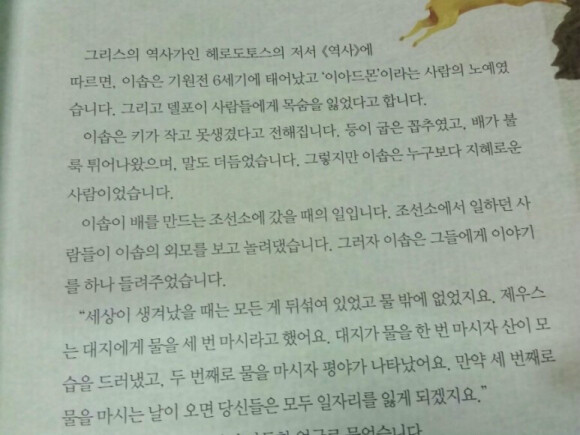 그리스의 역사가인 헤로도토스의 저서 《역사》에
따르면, 이솝은 기원전 6세기에 태어났고 ‘이아드몬’이라는 사람의 노예였
습니다. 그리고 델포이 사람들에게 목숨을 잃었다고 합니다.
이솝은 키가 작고 못생겼다고 전해집니다. 등이 굽은 꼽추였고, 배가 불
룩 튀어나왔으며, 말도 더듬었습니다. 그렇지만 이솝은 누구보다 지혜로운
사람이었습니다.
이솝이 배를 만드는 조선소에 갔을 때의 일입니다. 조선소에서 일하던 사
람들이 이솝의 외모를 보고 놀려댔습니다. 그러자 이솝은 그들에게 이야기
를 하나 들려주었습니다.
“세상이 생겨났을 때는 모든 게 뒤섞여 있었고 물 밖에 없었지요. 제우스
는 대지에게 물을 세 번 마시라고 했어요. 대지가 물을 한 번 마시자 산이 모
습을 드러냈고, 두 번째로 물을 마시자 평야가 나타났어요. 만약 세 번째로
물을 마시는 날이 오면 당신들은 모두 일자리를 잃게 되겠지요.”